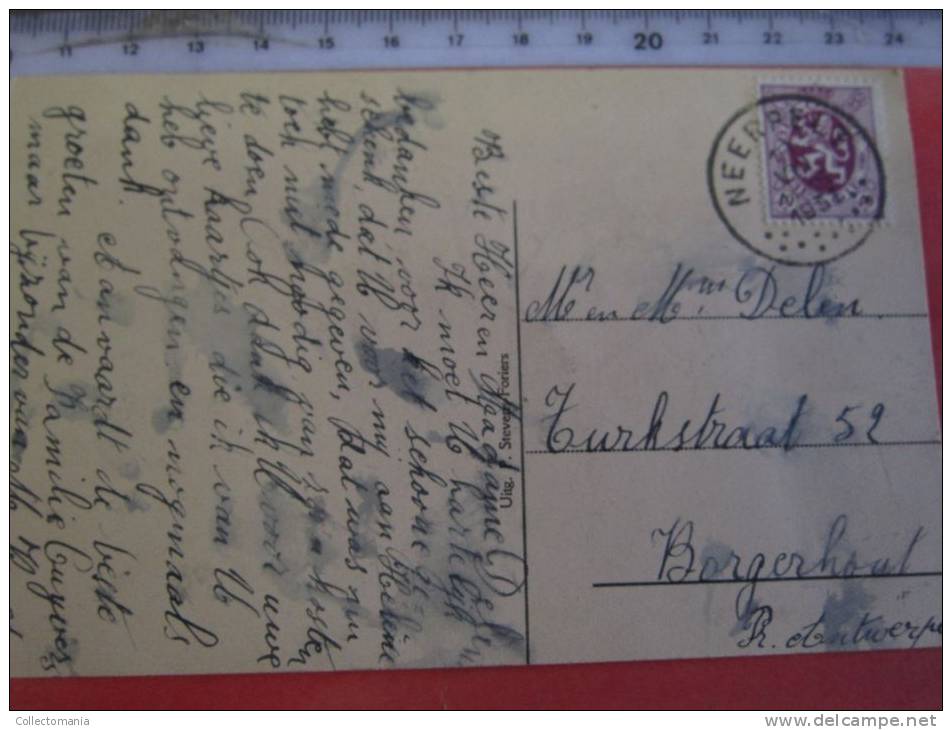 11 12 13 14 15 16 17 18 19 20 21 22 23 24
NEERPELT
Mr en Mme Delen.
Turkstraat 52
Borgerhout
P. Antwerpe
Uitg. S. Stevens-Foriers
Beste Heer en Madame Delen
Ik moet U hartelijk
bedanken voor het schoone ge-
schenk, dat U voor mij aan Heleine
hebt mede gegeven, Dat was nu
toch niet noodig van zijn kosten
te doen, Ook dank ik U voor uwe
lieve kaartjes die ik van U
heb ontvangen en nogmaals
dank. et aanvaardt de beste
groeten van de Familie Cuyvers
maar bijzonder van
Collectomania
www.delcampe.net